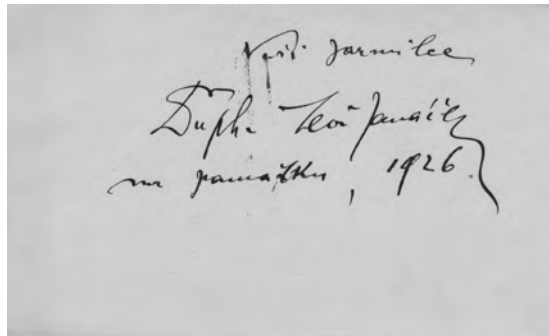 Naší Jarmilce
DrPh. Leoš Janáček
na památku, 1926.